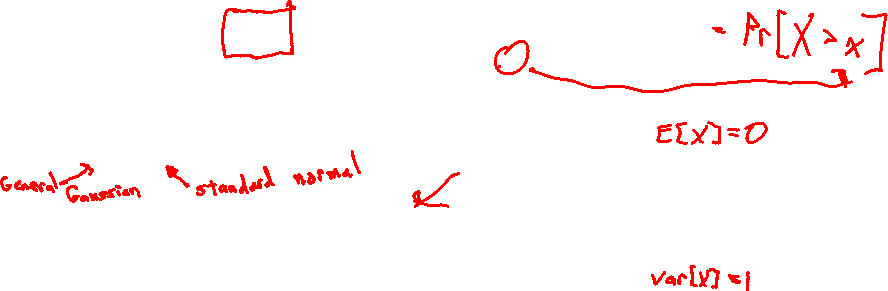 = Pr[X > x]
E[X] = 0
General Gaussian standard normal
var[X] = 1